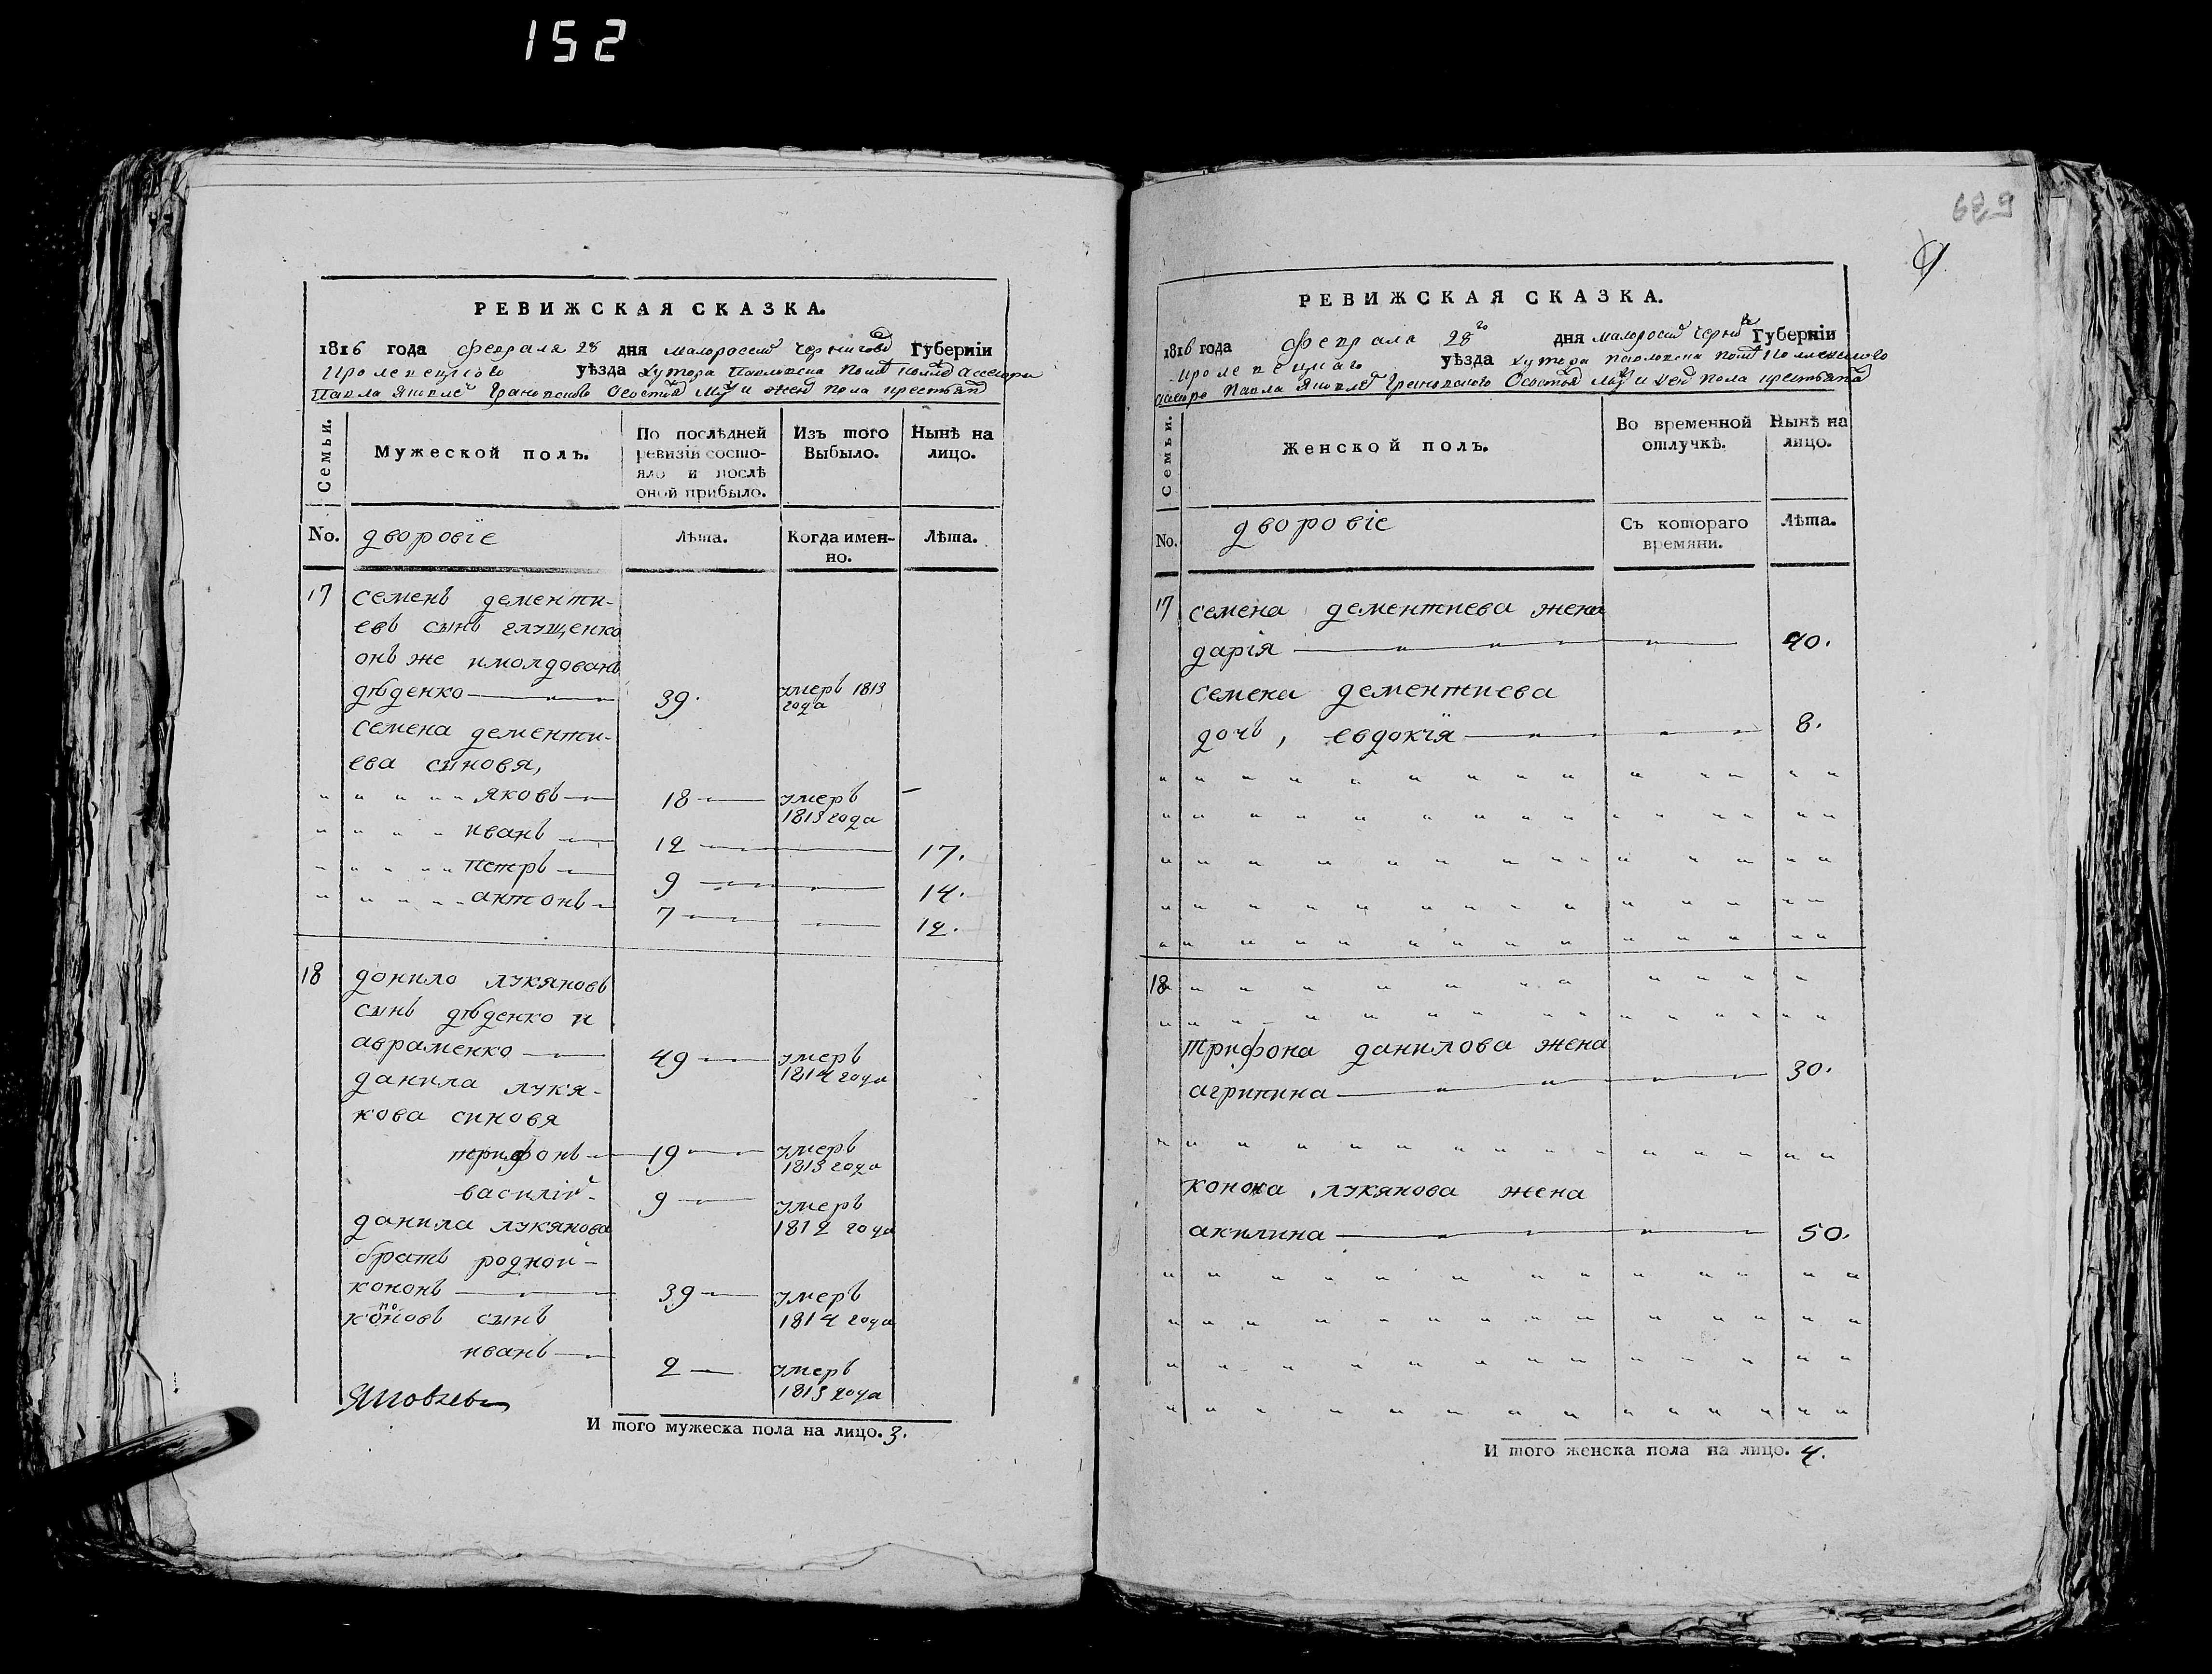 152
РЕВИЖСКАЯ СКАЗКА.
1816 года февраля 28 дня малоросий Чернигово Губернiи
Кролевецкого уѣзда хутора Павловска
Павла и жен пола крестьян
Семьи.
Мужеской полъ.
По послѣдней ревизiи состояло и послѣ оной прибыло.
Изъ того Выбыло.
Нынѣ на лицо.
No. дворовiе Лѣта. Когда именно. Лѣта.
17 семенъ дементи-
евъ сынъ глущенко
онъ же и молдованъ
дѣденко 39. умеръ 1813 года
семена дементи-
ева синовя,
яковъ 18 умеръ 1813 года
иванъ 12 17.
петръ 9 14.
антонъ 7 12.
18 донило лукяновъ
сынъ дѣденко и
авраменко 49 умеръ 1814 года
данила лукя-
нова синовя
трифонъ 19 умеръ 1813 года
василiй 9 умеръ 1812 года
данила лукянова
братъ родной
кононъ 39 умеръ 1814 года
кононовъ сынъ
иванъ 2 умеръ 1813 года
И того мужеска пола на лицо. 3.
639
9
РЕВИЖСКАЯ СКАЗКА.
1816 года февраля 28го дня малоросий Губернiи
Кролевецкаго уѣзда хутора Павловска
Павла и жен пола крестьян
Семьи.
Женской полъ.
Во временной отлучкѣ.
Нынѣ на лицо.
No. дворовiе Съ котораго времяни. Лѣта.
17 семена дементиева жена
дарiя 40.
семена дементиева
дочъ, евдокiя 8.
18
трифона данилова жена
агрипина 30.
конона лукянова жена
акилина 50.
И того женска пола на лицо. 4.